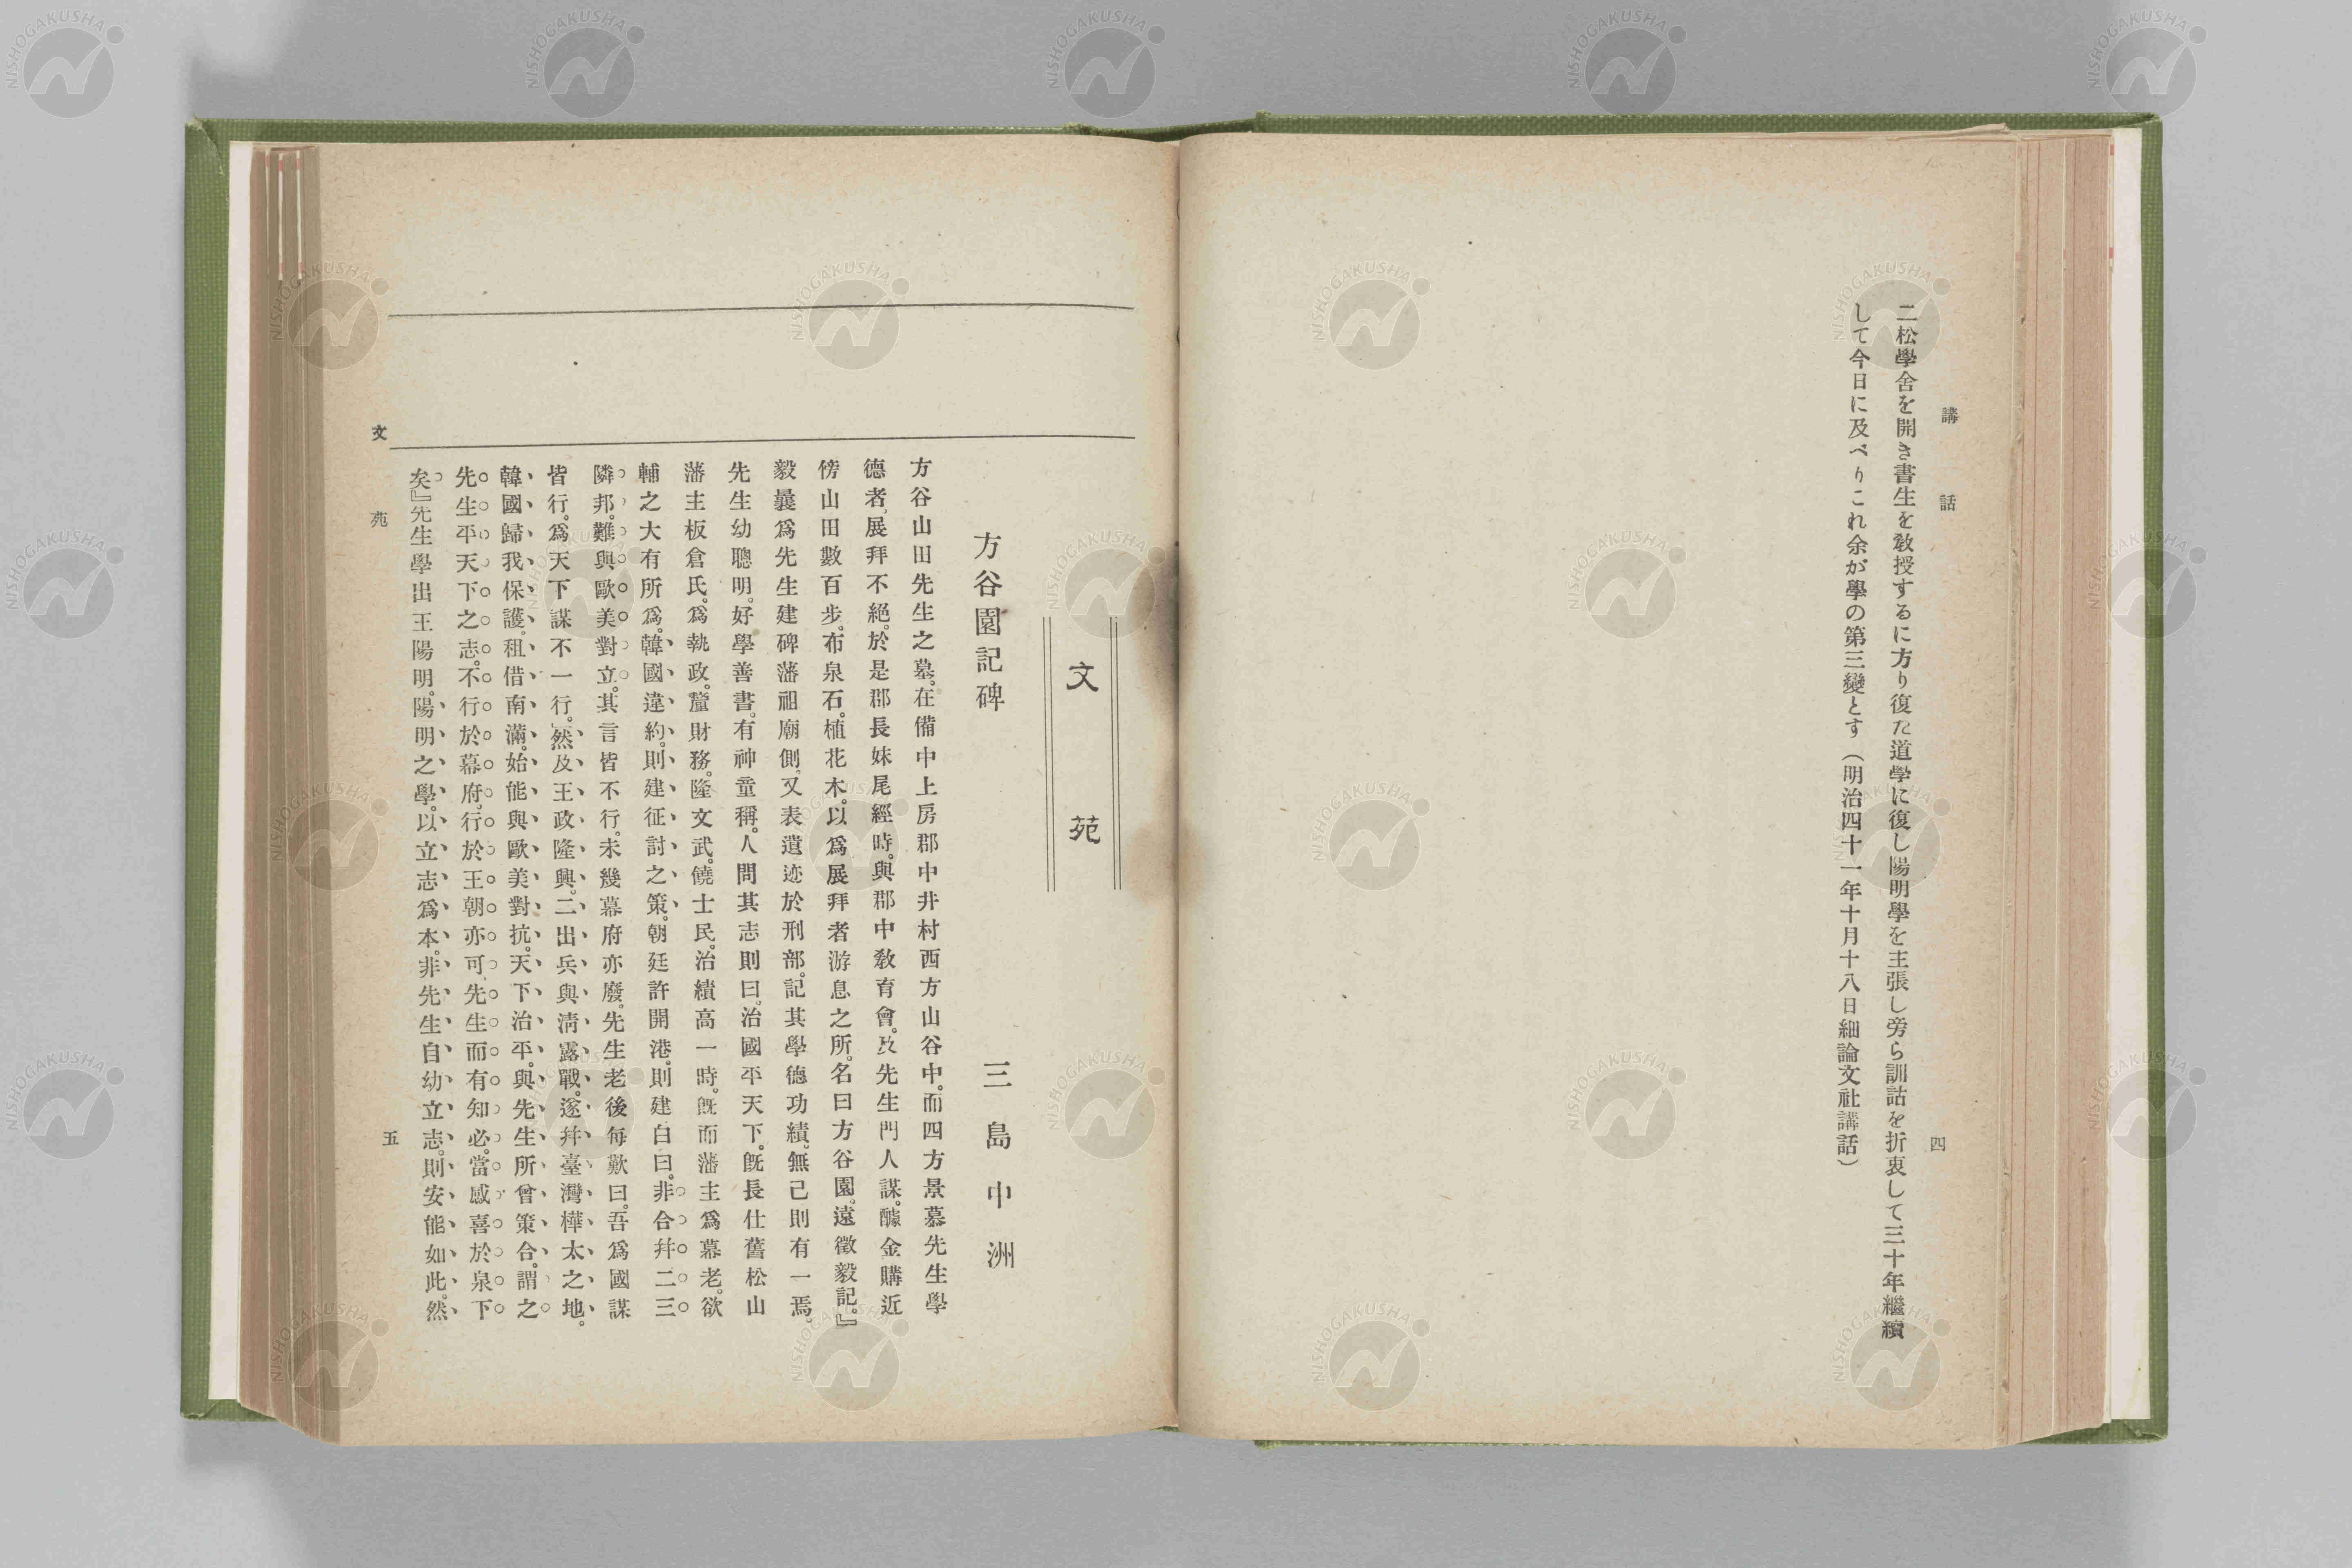 講話
四
二松學舍を開き書生を敎授するに方り復た道學に復し陽明學を主張し旁ら訓詁を折衷して三十年繼續
して今日に及べりこれ余が學の第三變とす（明治四十一年十月十八日細論文社講話）
文苑
方谷園記碑
三島中洲
方谷山田先生之墓。在備中上房郡中井村西方山谷中。而四方景慕先生學
德者、展拜不絕。於是郡長妹尾經時。與郡中敎育會。及先生門人謀。醵金購近
傍山田數百步。布泉石。植花木。以爲展拜者游息之所。名曰方谷園。遠徵毅記。』
毅曩爲先生建碑藩祖廟側。又表遺迹於刑部。記其學德功績。無已則有一焉。
先生幼聰明。好學善書。有神童稱。人問其志則曰。治國平天下。旣長仕舊松山
藩主板倉氏。爲執政。釐財務。隆文武。饒士民。治績高一時。旣而藩主爲幕老。欲
輔之大有所爲。韓國違約。則建征討之策。朝廷許開港。則建白曰。非合幷二三
隣邦。難與歐美對立。其言皆不行。未幾幕府亦廢。先生老後每歎曰。吾爲國謀
皆行。爲天下謀不一行。然及王政隆興。二出兵與淸露戰。遂幷臺灣樺太之地。
韓國歸我保護。租借南滿。始能與歐美對抗。天下治平。與先生所曾策合。謂之
先生平天下之志。不行於幕府。行於王朝亦可。先生而有知必。當感喜於泉下
矣』先生學出王陽明。陽明之學。以立志爲本。非先生自幼立志。則安能如此。然
文苑
五
NISHOGAKUSHA